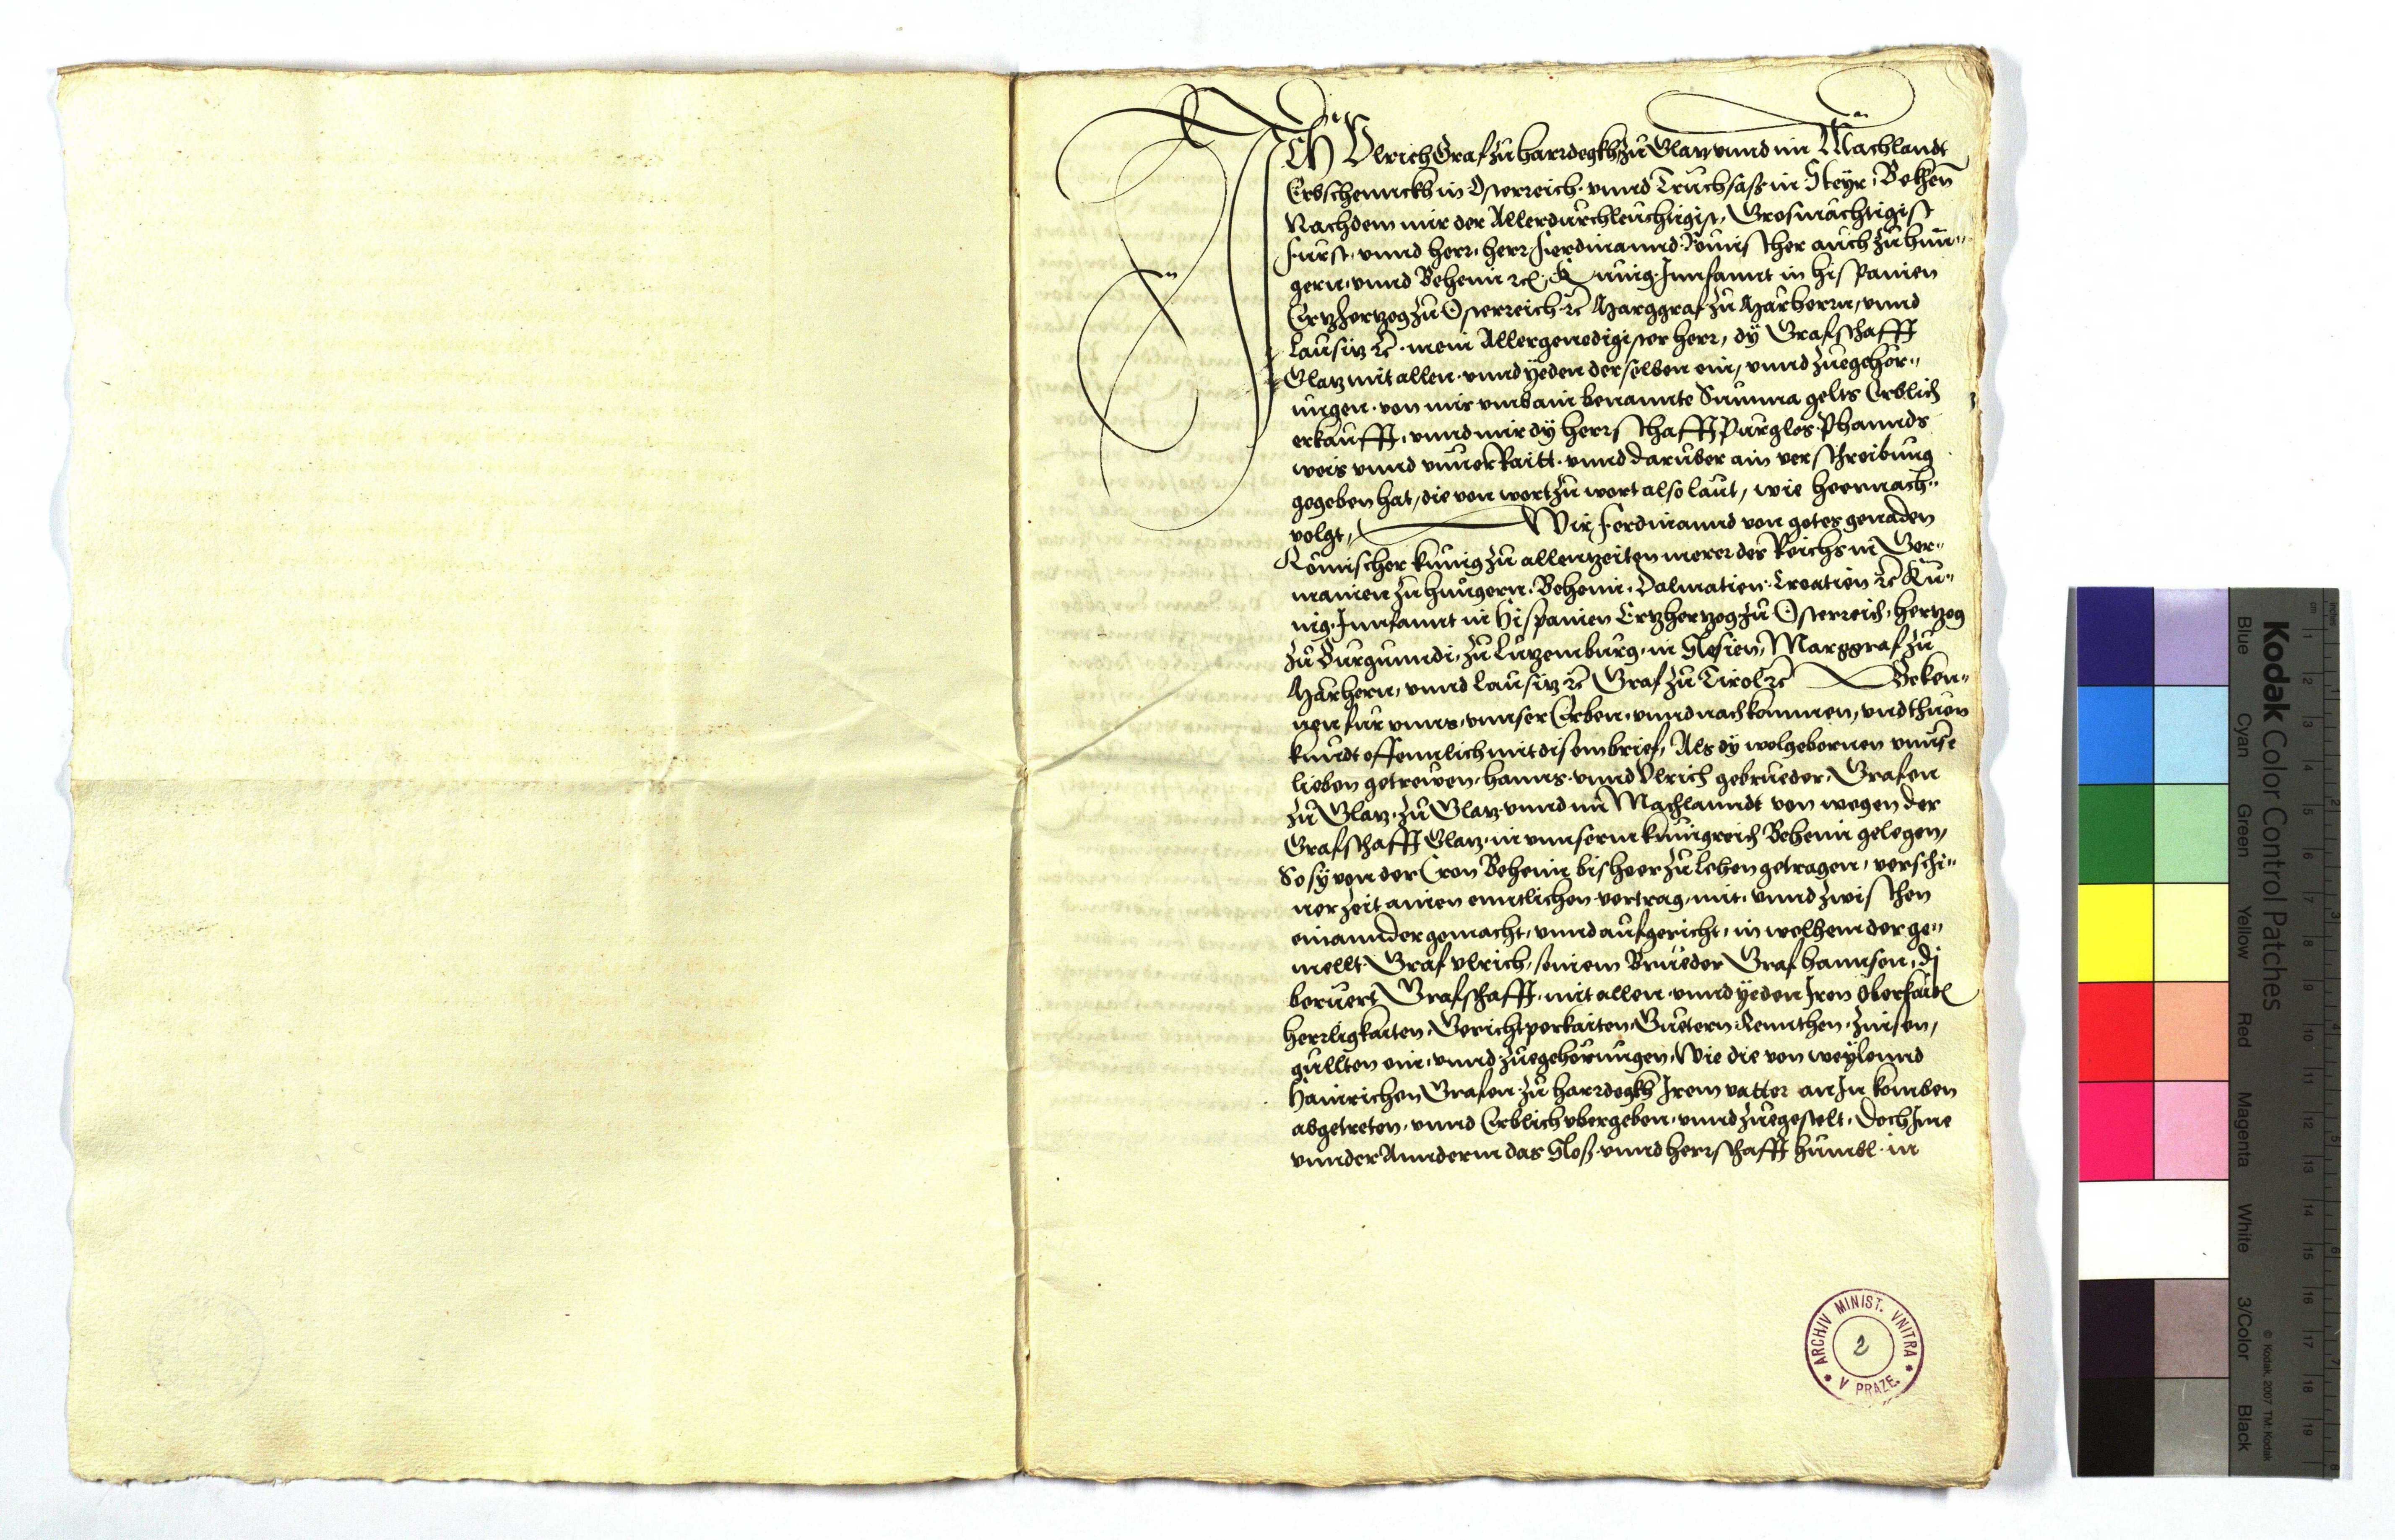 Ich Ulrich Graf zu Harrdegkh zu Glatz vnnd im Machlandt
Erbschennckh in Osterreich vnnd Truchsass in Steyr, Bekhen
Nachdem mir der Allerdurchleuchtigist, Grosmachtigist
Furst vnnd herr, herr Ferdinannd Romischer auch zu Hun"
gern, vnnd Behem rc. Kunig Innfannt in hispanien
Ertzhertzog zu Osterreich rc Marggraf zu Marhern, vnnd
Lausitz rc. mein Allergenedigister herr, dy Grafschafft
Glatz mit allen vnnd yeden derselben ein, vnnd zuegehor"
ungen von mir vmb ain benannte Summa gelts Erblich
erkaufft, vnnd mir dy herrschafft Purglos Phannds
weis vnnd vnuerRaitt vnnd daruber ain verschreibung
gegeben hat, die von wort zu wort also laut, wie heernach"
volgt, Wir Ferdinannd von gotes genaden
Romischer kunig zu allenntzeiten merer des Reichs in Ger"
manien zu hungern, Behem, Dalmatien, Croatien rc Ku"
nig, Innfannt in Hispanien Ertzhertzog zu Osterreich, hertzog
zu Burgunndi, zu Lutzemburg, in Slesien, Marggraf zu
Marhern, vnnd Lausitz rc Graf zu Tirol rc Beken"
nen fur vnns, vnnser Erben, vnnd nachkommen, vnd thuen
kundt offennlich mit disem brief, Als dy wolgebornen vnnse
lieben getrewen, hanns vnnd Ulrich gebrueder, Grafen
zu Glatz, zu Glatz vnnd im Machlanndt von wegen der
Grafschafft Glatz in vnnserm kunigreich Behem gelegen,
So sy von der Cron Behem bisheer zu Lehen getragen, verschi"
ner zeit ainen enntlichen vertrag, mit, vnnd zwischen
einannder gemacht, vnnd aufgericht, in welhem der ge"
mellt Graf Ulrich, seinem Brueder Graf hannsen, dj
beruert Grafschafft, mit allen vnnd yeden Iren Oberkait
herrligkaiten, Gerichtperkaiten, Guetern, Rennthen, Zinsen,
gullten ein, vnnd zuegehorungen, Wie die von weylennd
Hainrichen Grafen zu harrdegkh Irem vatter an In komben
abgetreten, vnnd Erblich vbergeben, vnnd zuegestelt, Doch Ime
vnnder Annderm das Sloß vnnd herrschafft Humbl in
ARCHIV MINIST. VNITRA
V PRAZE
2
Kodak Color Control Patches
© Kodak, 2007 TM: Kodak
Blue Cyan Green Yellow Red Magenta White 3/Color Black
inches 1 2 3 4 5 6 7 8
cm 1 2 3 4 5 6 7 8 9 10 11 12 13 14 15 16 17 18 19